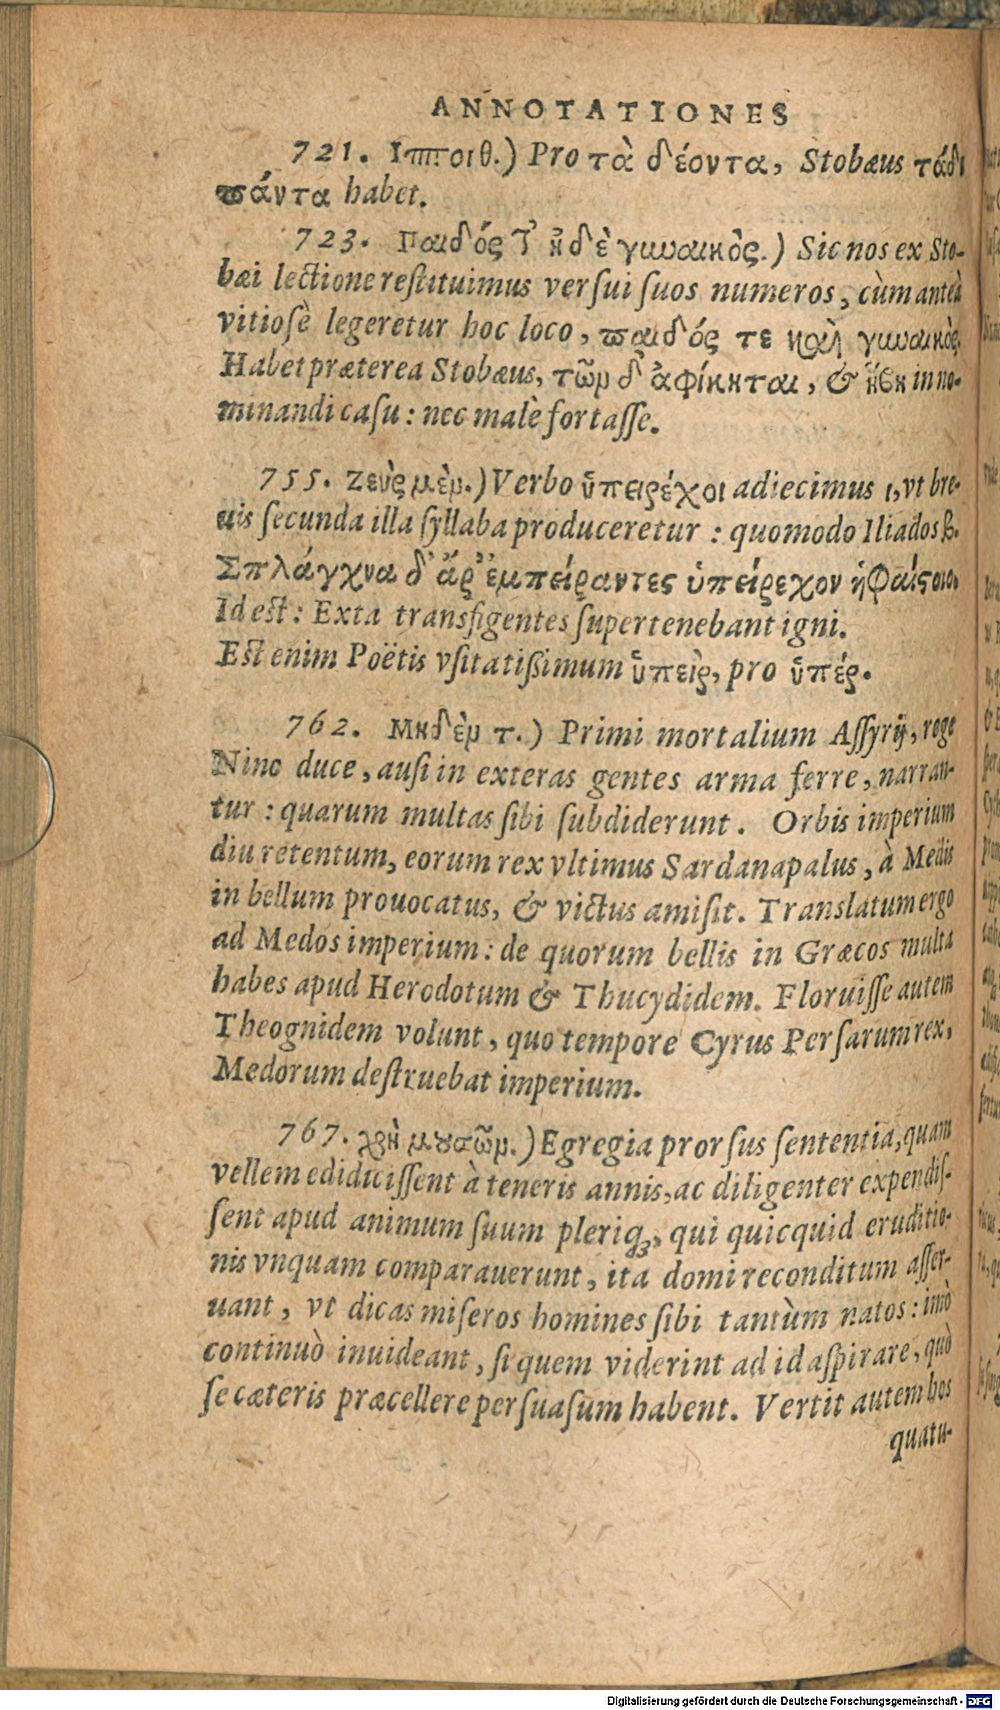 ANNOTATIONES
721. Ἵπποιθ.) Pro τὰ δέοντα, Stobæus τάδε
πάντα habet.
723. Παιδός τ' ἠδὲ γυναικὸς.) Sic nos ex Sto-
bæi lectione reſtituimus verſui ſuos numeros, cùm anteà
vitioſè legeretur hoc loco, παιδός τε καὶ γυναικὸς.
Habet præterea Stobæus, τῶν δ' ἀφίκηται, & ἥβη in no-
minandi caſu: nec malè fortaſſe.
755. Ζεὺς μὲν.) Verbo ὑπειρέχοι adiecimus ι, vt bre-
uis ſecunda illa ſyllaba produceretur: quomodo Iliados β.
Σπλάγχνα δ' ἄρ' ἐμπείραντες ὑπείρεχον ἡφαίςοιο.
Id est: Exta transfigentes ſupertenebant igni.
Est enim Poëtis vſitatißimum ὑπεὶρ, pro ὑπέρ.
762. Μηδὲν τ.) Primi mortalium Aſſyrij, rege
Nino duce, auſi in exteras gentes arma ferre, narran-
tur: quarum multas ſibi ſubdiderunt. Orbis imperium
diu retentum, eorum rex vltimus Sardanapalus, à Medis
in bellum prouocatus, & victus amiſit. Translatum ergo
ad Medos imperium: de quorum bellis in Græcos multa
habes apud Herodotum & Thucydidem. Floruiſſe autem
Theognidem volunt, quo tempore Cyrus Perſarum rex,
Medorum deſtruebat imperium.
767. χρὴ μουσῶν.) Egregia prorſus ſententia, quam
vellem edidiciſſent à teneris annis, ac diligenter expendiſ-
ſent apud animum ſuum pleriqꝫ, qui quicquid eruditio-
nis vnquam comparauerunt, ita domi reconditum aſſer-
uant, vt dicas miſeros homines ſibi tantùm natos: imò
continuò inuideant, ſi quem viderint ad id aſpirare, quò
ſe cæteris præcellere perſuaſum habent. Vertit autem hos
quatu-
Digitalisierung gefördert durch die Deutsche Forschungsgemeinschaft - DFG